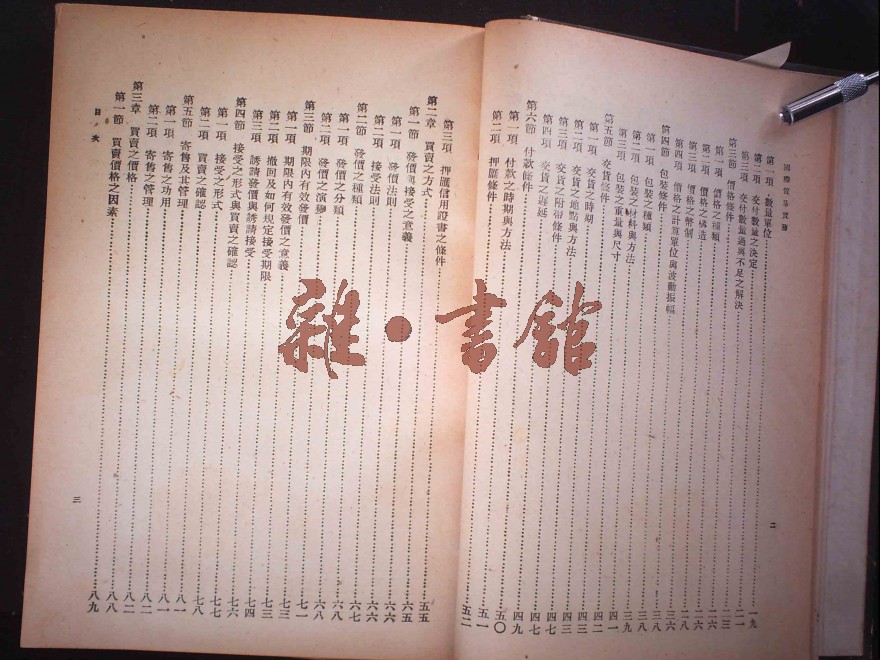 國際貿易實務
二
第一項 數量單位 一九
第二項 交付數量之決定 二一
第三項 交付數量過與不足之解決 二三
第三節 價格條件 二六
第一項 價格之種類 二六
第二項 價格之構造 二八
第三項 價格之幣制 三六
第四項 價格之計算單位與波動振幅 三八
第四節 包裝條件 三八
第一項 包裝之種類 三九
第二項 包裝之材料與方法 四一
第三項 包裝之重量與尺寸 四二
第五節 交貨條件 四三
第一項 交貨之時期 四三
第二項 交貨之地點與方法 四七
第三項 交貨之附帶條件 四七
第四項 交貨之遲延 四九
第六節 付款條件 五〇
第一項 付款之時期與方法 五一
第二項 押匯條件 五二
第三項 押匯信用證書之條件 五五
第二章 買賣之方式 六五
第一節 發價與接受之意義 六六
第一項 發價法則 六六
第二項 接受法則 六七
第二節 發價之種類 六八
第一項 發價之分類 六八
第二項 發價之演變 七一
第三節 期限內有效發價 七三
第一項 期限內有效發價之意義 七三
第二項 撤回及如何規定接受期限 七四
第三項 誘請發價與誘請接受 七六
第四節 接受之形式與買賣之確認 七七
第一項 接受之形式 七八
第二項 買賣之確認 八一
第五節 寄售及其管理 八一
第一項 寄售之功用 八二
第二項 寄售之管理 八二
第三章 買賣之價格 八八
第一節 買賣價格之因素 八九
目次
三
雜·書館